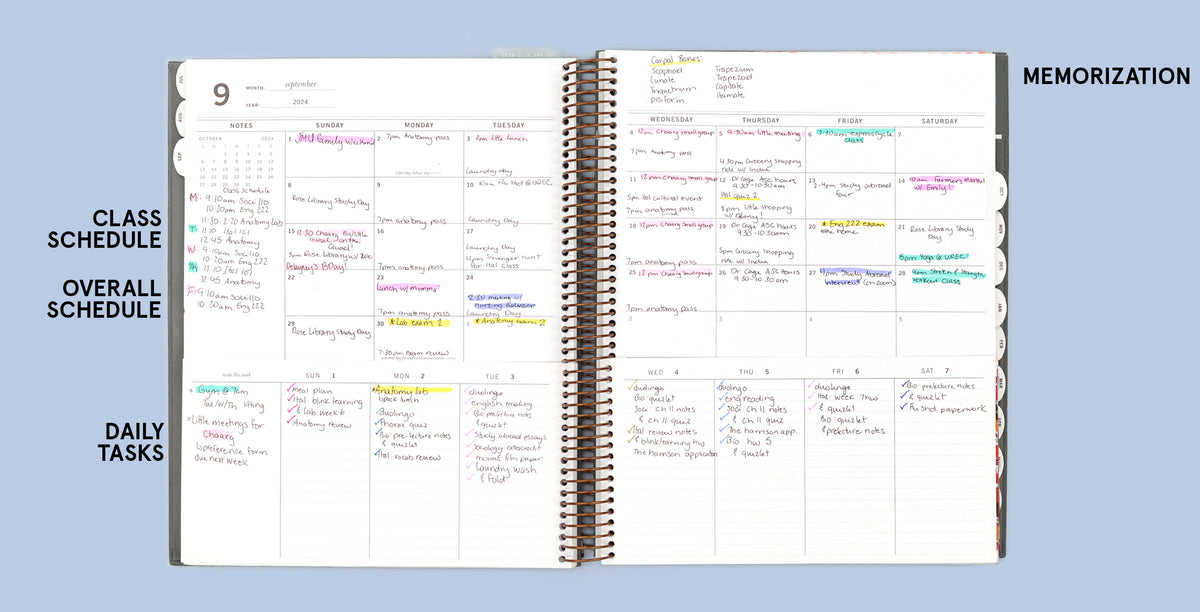 MEMORIZATION
CLASS
SCHEDULE
OVERALL
SCHEDULE
DAILY
TASKS
9
MONTH: september
YEAR: 2024
NOTES
SUNDAY
MONDAY
TUESDAY
OCTOBER 2024
Class Schedule
M: 9:10am Soci 110
10:20am Eng 222
11:30-2:20 Anatomy Lab
11:10 Ital 101
12:45 Anatomy
W: 9:10am Soci 110
10:20am Eng 222
Th: 11:10 Ital 101
12:45 Anatomy
F: 9:10am Soci 110
10:20am Eng 222
1 JMU Family Weekend
2 7pm Anatomy pass
3 2pm little lunch
Laundry Day
8
Rose Library Study Day
9
7pm anatomy pass
10 10am Flu Shot @ UREC
Laundry Day
15 12:30 Chaarg
Quad!
3pm Rose Library w/ Zoe
BDay!
16
7pm anatomy pass
17
Laundry Day
4pm Scavenger hunt
for Ital Class
22
23
Lunch w/ momma
7pm anatomy pass
24
2:30 meeting w/
nursing advisor
Laundry Day
29
Rose Library Study Day
30 * Lab exam 1
7:30am exam review
1 * Anatomy exam 2
Carpal Bones:
Scaphoid Trapezium
Lunate Trapezoid
Triquetrum Capitate
Pisiform Hamate
WEDNESDAY
THURSDAY
FRIDAY
SATURDAY
4 12pm Chaarg small group
7pm Anatomy pass
5 9:30am little meeting
4:30pm Grocery shopping
ride w/ India
6 7:30am express cycle
class
7
11 12pm Chaarg small group
5pm Ital cultural event
7pm anatomy pass
12 Dr Cage ASC hours
9:30-10:30am
Ital quiz 2
8pm little shopping
13
2-4pm Study abroad
fair
14 10am Farmers Market
w/ Emily!
18 12pm Chaarg small group
7pm anatomy pass
19 Dr Cage ASC hours
9:30-10:30am
5pm Grocery shopping
ride w/ India
20 * Eng 222 exam
take home
21
Rose Library Study
Day
5pm Yoga @ UREC
25 12 pm Chaarg small group
7pm anatomy pass
26 Dr Cage ASC Hours
9:30-10:30am
27 4pm Study Abroad
Interview! (on zoom)
28 9am Stretch & Strength
workout class
2
3
4
5
to do this week
SUN 1
MON 2
TUE 3
Gym @ 7am
Tue/W/Th lifting
Little meetings for
Chaarg
preference form
due next week
meal plan
Ital blink learning
& Lab week 6
Anatomy review
Anatomy lab
duolingo
Thorax quiz
Bio: pre-lecture notes
& quizlet
Ital: vocab review
duolingo
english reading
Bio prelecture notes
& quizlet
Study abroad essays
Sociology extracredit
film paper
Laundry wash
& fold
WED 4
THU 5
FRI 6
SAT 7
duolingo
Bio quizlet
Soci: Ch 11 notes
& Ch 11 quiz
Ital review notes
& blink learning hw
The harrison application
duolingo
eng reading
Soci: Ch 11 notes
& Ch 11 quiz
The harrison app.
Bio: hw 5
& quizlet
duolingo
Ital: week two
& quizlet
Bio quizlet
prelecture notes
Bio: prelecture notes
& quizlet
Flu shot paperwork